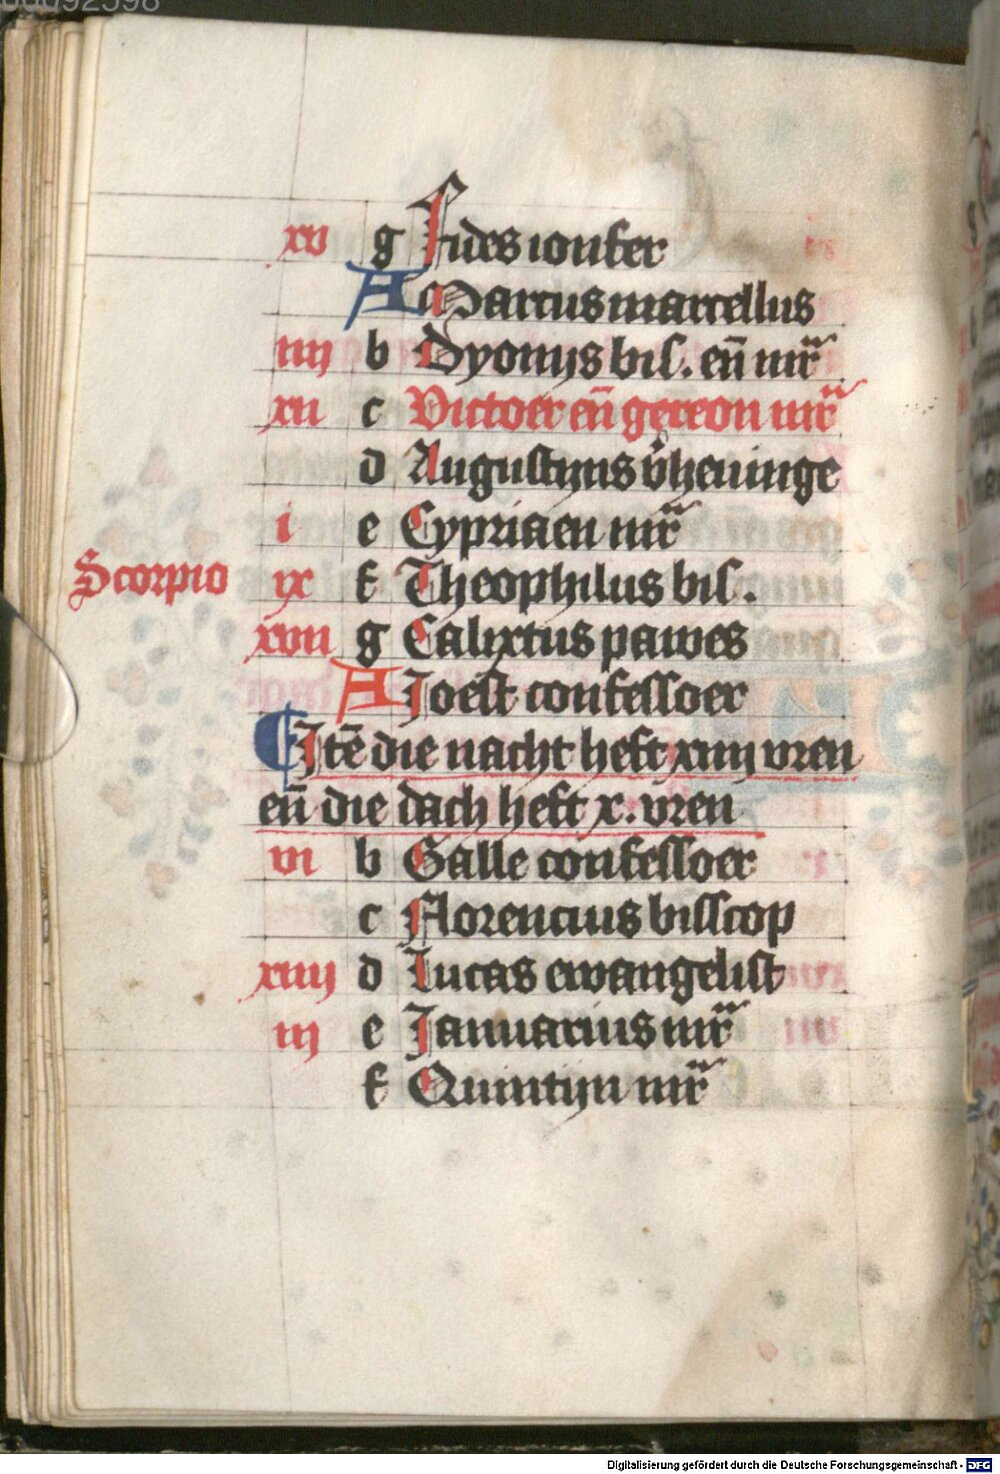 xv g Fides ionfer
A Marcus marcellus
iiij b Dyonijs bis. eñ mr̄
xii c Victoer eñ gereon mr̄
d Augustijns v̄heuinge
i e Cypriaen mr̄
Scorpio ix f Theophilus bis.
xvii g Calixtus pawes
A Joest confessoer
Itē die nacht heft xiiij vren
eñ die dach heft x. vren
vi b Galle confessoer
c Florencius bisscop
xiiij d Lucas ewangelist
iij e Januarius mr̄
f Quintijn mr̄
Digitalisierung gefördert durch die Deutsche Forschungsgemeinschaft - DFG